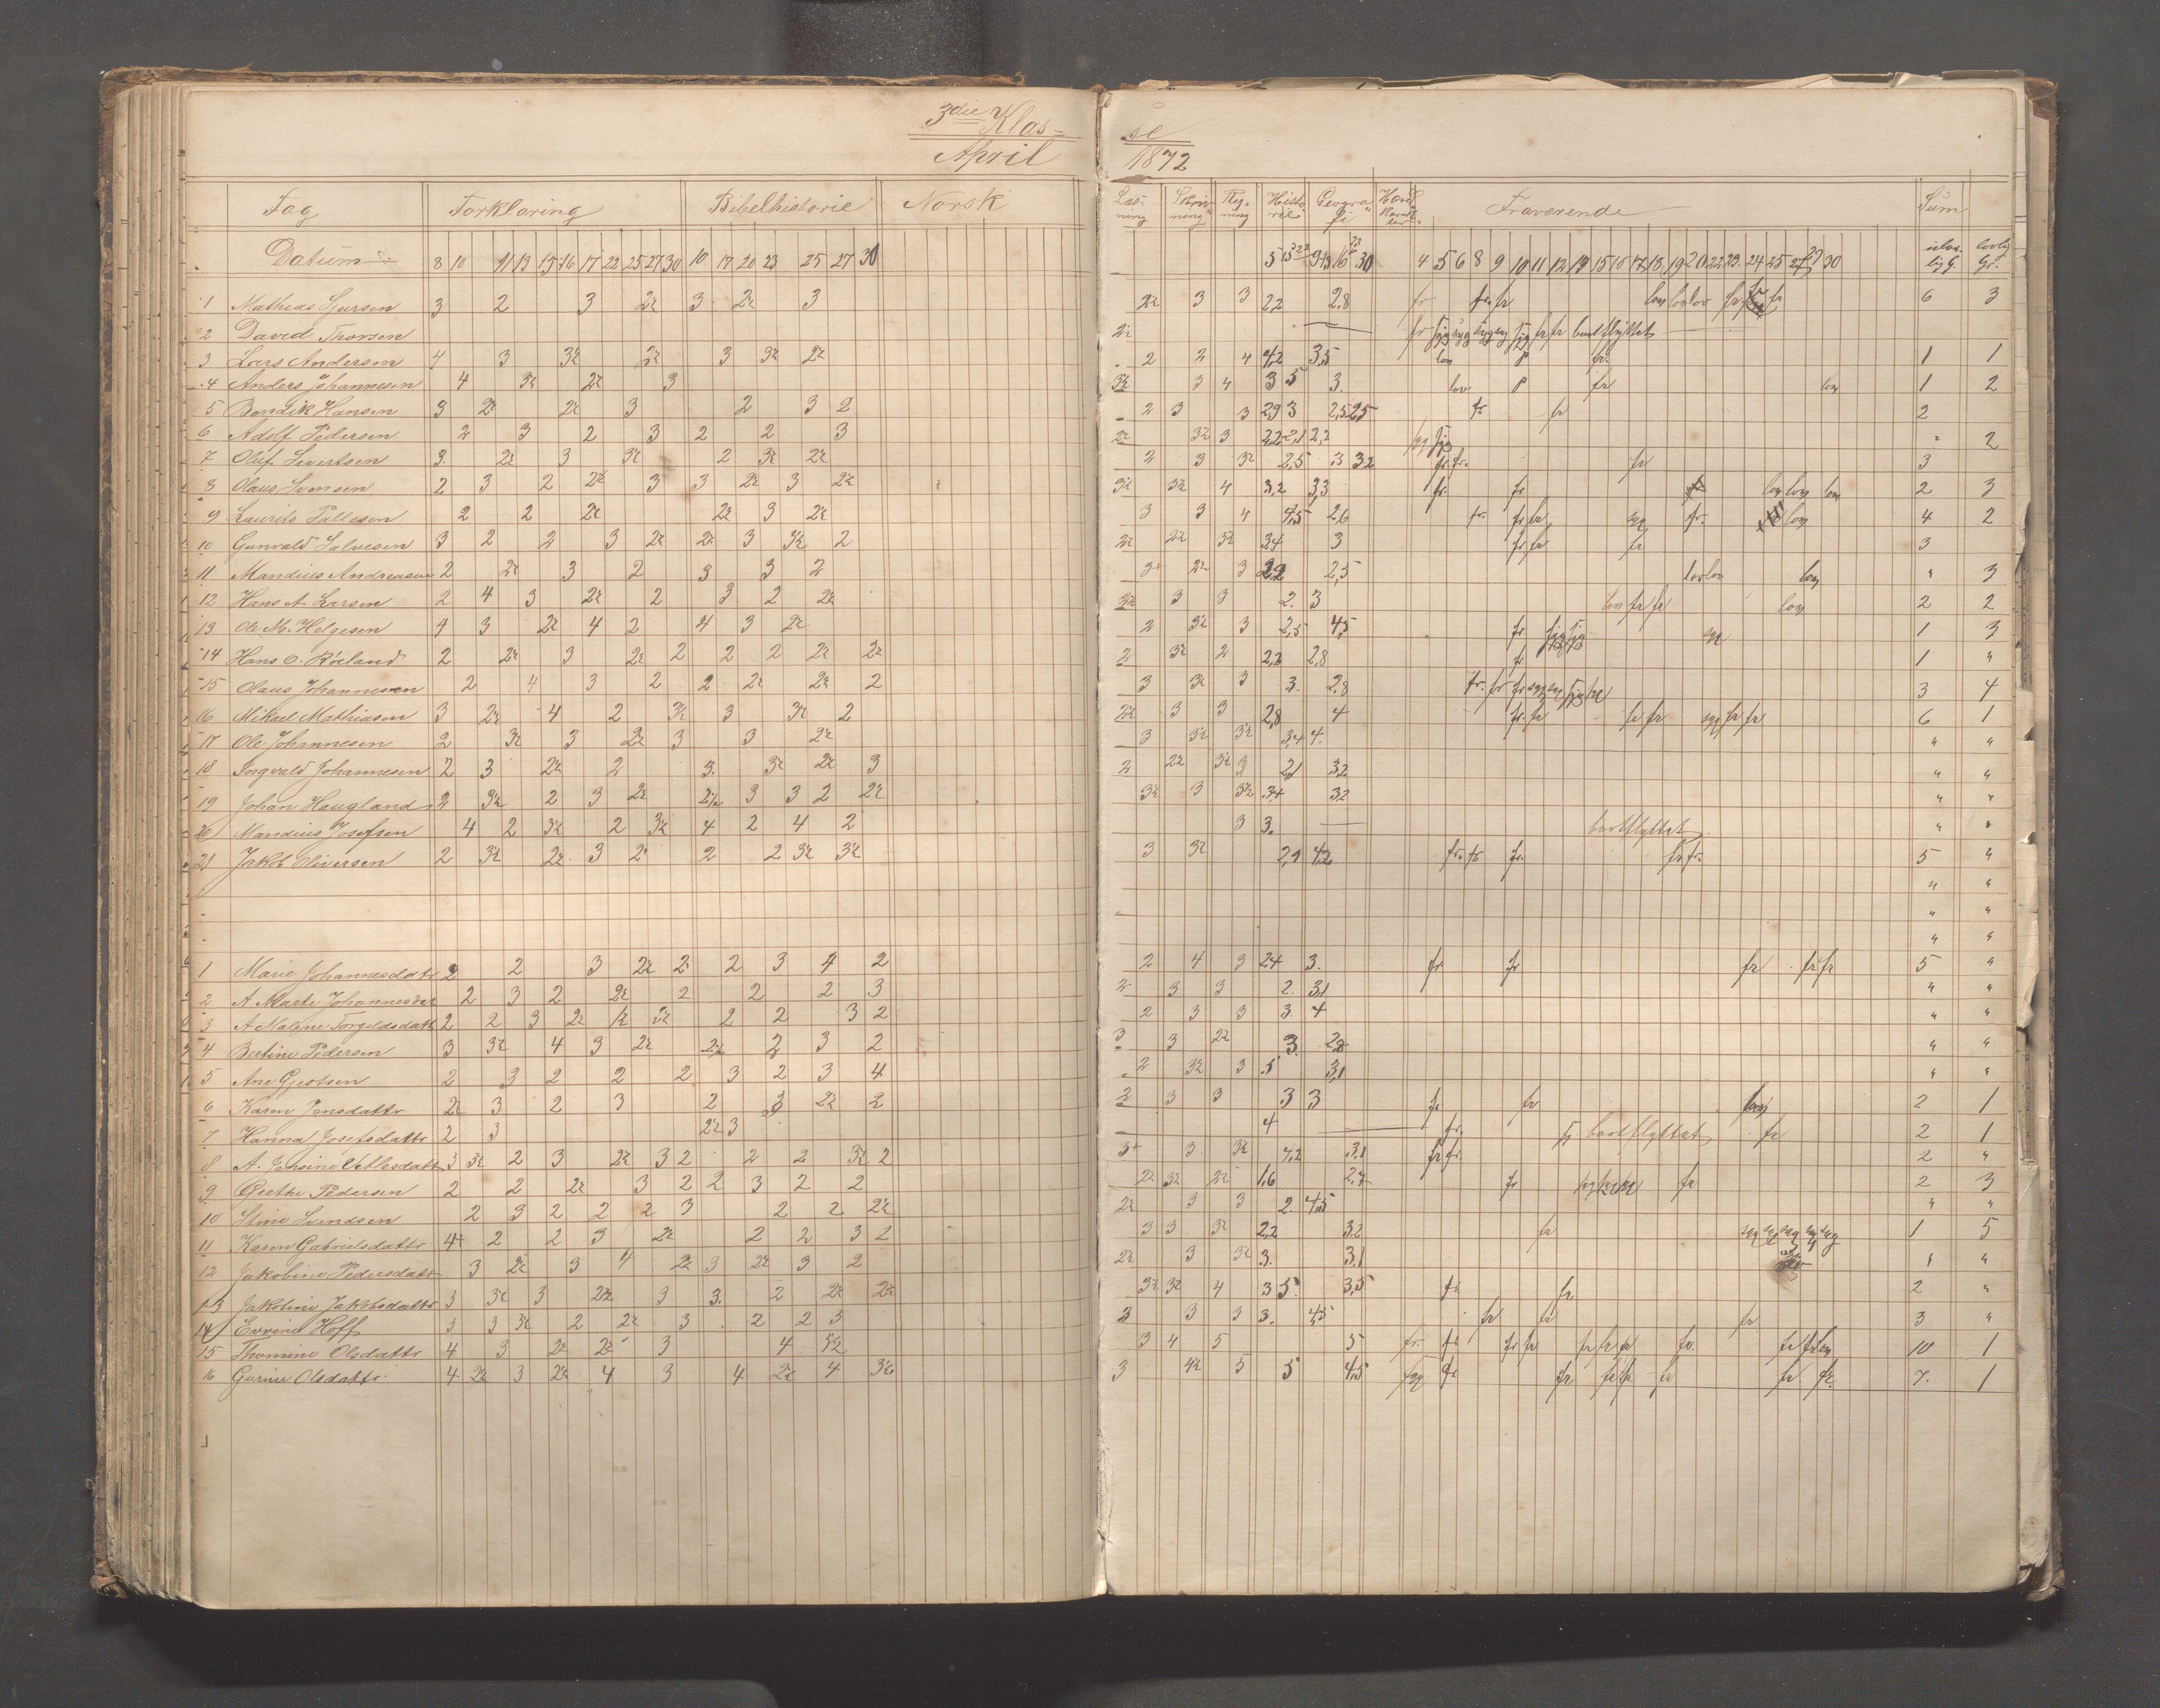 3die Klas-
April
Fag Forklaring Bibelhistorie Norsk
Datum 8 10 11 13 15 16 17 22 25 27 30 10 17 20 23 25 27 30
1 Mathias Sjursen 3 2 3 2½ 3 2½ 3
2 David Thorsen
3 Lars Andersen 4 3 3½ 2½ 3 3½ 2½
4 Anders Johannesen 4 3½ 2½ 3
5 Bendik Hansen 3 2½ 2½ 3 2 3 2
6 Adolf Pedersen 2 3 2 3 2 2 3
7 Oluf Sivertsen 3. 2½ 3 3½ 2 3½ 2½
8 Olaus Svensen 2 3 2 2½ 3 3 2½ 3 2½
9 Laurits Pallesen 2 2 2½ 2½ 3 2½
10 Gunvald Salvesen 3 2 2 3 2½ 2½ 3 3½ 2
11 Mandius Andreasen 2 2½ 3 2 3 3 2
12 Hans A. Larsen 2 4 3 2½ 2 3 2 2½
13 Ole M. Helgesen 4 3 2½ 4 2 4 3 2½
14 Hans O. Röeland 2 2½ 3 2½ 2 2 2 2½ 2½
15 Olaus Johannesen 2 4 3 2 2 2½ 2½ 2
16 Mikael Mathiasen 3 2½ 4 2 3½ 3 3½ 2
17 Ole Johannesen 2 3½ 3 2½ 3 3 2½
18 Ingvald Johannesen 2 3 2½ 2 3. 3½ 2½ 3
19 Johan Haugland 2 3½ 2 3 2½ 2½ 3 3 2 2½
20 Mandius Josefsen 4 2 3½ 2 3½ 4 2 4 2
21 Jakob Oliversen 2 3½ 2½ 3 2 2 2 3½ 3½
1 Marie Johannesdatr 2 2 3 2½ 2 2 3 4 2
2 A Marte Johannesdat 2 3 2 2½ 2 2 2 3
3 A Malene Torgildsdatt 2 2 3 2½ 2½ 2 2 3 2
4 Bertine Pedersen 3 3½ 4 3 2½ 2½ 2 3 2
5 Ane Gjertsen 2 3 2 2 2 3 2 3 4
6 Karen Jensdattr 2½ 3 2 3 2 3 2½ 2
7 Hanna Josefsdattr 2 3 2½ 3
8 A. Jensine Atlesdatt 3 3½ 2 3 2½ 3 2 2 2 3½ 2
9 Grethe Pedersen 2 2 2½ 3 2 2 3 2 2
10 Stine Svendsen 2 3 2 2 2 3 2 2 2½
11 Karen Gabrielsdattr 4+ 2 2 3 2½ 2 2 3 2
12 Jakobine Pedersdatt 3 2½ 3 4 2½ 3 2½ 3 2
13 Jakobine Jakobsdattr 3 3½ 3 2½ 3 3. 2 2½ 2½
14 Evvine Hoff 3 3 3½ 2 2½ 3 2 2 3
15 Thomine Olsdattr 4 3 2½ 2½ 3 4 3½
16 Gurine Olsdattr. 4 2½ 3 2½ 4 3 4 2½ 4 3½
se
1872
Læs-ning Skriv-ning Reg-ning Histo-rie Geogra-fi Fraværende Sum
4 5 6 8 9 10 11 12 13 15 16 17 18 19 20 22 23 24 25 27 29 30
2½ 3 3 2,2 2,8 fr fr. fr lov lov lov fr fr 6 3
2½ fr syg syg fr fr bortflyttet
2 2 4 4,2 3,5 lov fr. 1 1
3½ 3 4 3 5 3. lov fr lov 1 2
2 3 3 2,9 3 2,5 2,5 fr. fr 2
2½ 3½ 3 2,2 2,1 2,2 syg syg " 2
2 3 3½ 2,5 3 3,2 fr. fr. fr 3
3½ 3½ 4 3,2 3,3 fr. fr lov lov lov 2 3
3 3 4 4,5 2,6 fr. fr fr syg fr. lov 4 2
2½ 2½ 3½ 3,4 3 fr fr fr 3
3+ 2½ 3 2,2 2,5 lov lov lov " 3
3½ 3 3 2. 3 lov fr fr lov 2 2
2 3½ 3 2,5 4,5 fr syg syg syg 1 3
2 3½ 2 2,2 2,8 fr 1 "
3 3½ 3 3. 2,8 fr. fr fr syg syg syg syg 3 4
2½ 3 3 2,8 4 fr. fr fr fr syg fr fr 6 1
3 3½ 3½ 3,4 4. " "
2 2½ 3½ 2,1 3,2 " "
3½ 3 3½ 3,4 3,2 " "
3 3. bortflyttet " "
3 3½ 2,9 4,2 fr. fr fr. fr fr. 5 "
" "
" "
" "
2 4 3 2,4 3. fr fr fr fr fr 5 "
2 3 3 2. 3,1 " "
2 3 3 3. 4 " "
3 3 2½ 3. 2,8 " "
2 3½ 3 .5 3,1 " "
2 3 3 3 3 fr fr lov 2 1
4 fr. bortflyttet fr 2 1
3+ 3 3½ 4,2 3,1 fr fr. 2 "
2½ 3½ 2½ 1,6 2,7 fr syg syg syg fr 2 3
2½ 3 3 2. 4,5 " "
3 3 3½ 2,2 3,2 fr syg syg syg syg syg 1 5
2½ 3 3½ 3. 3,1 " "
3½ 3½ 4 3 5. 3,5 fr fr. 2 "
3 3 3 3. 4,5 fr fr fr 3 "
3 4 5 5 fr. fr fr fr fr fr fr fr. fr fr lov 10 1
3 4½ 5 5 4,5 syg fr fr fr fr fr fr fr. 7. 1